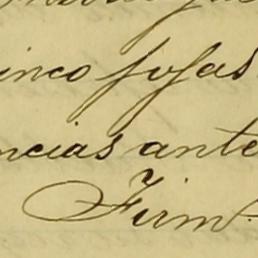 inco fojas
ncias ante
Firm.